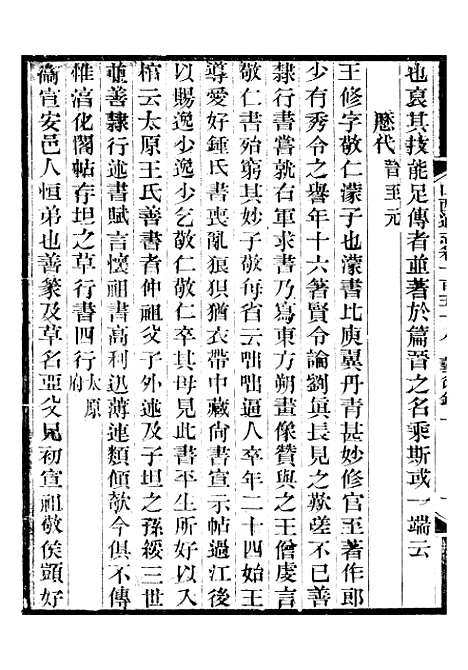 也裒其技能足傳者並著於篇晉之名乘斯或一端云
歷代 晉至元
王修字敬仁濛子也濛書比庾翼丹青甚妙修官至著作郎
少有秀令之譽年十六著賢令論劉眞長見之歎嗟不已善
隸行書嘗就右軍求書乃爲東方朔畫像贊與之王僧虔言
敬仁書殆窮其妙子敬每省云咄咄逼人卒年二十四始王
導愛好鍾氏書喪亂狼狽猶衣帶中藏尙書宣示帖過江後
以賜逸少逸少乞敬仁敬仁卒其母見此書平生所好以入
棺云太原王氏善書者仲祖父子外述及子坦之孫綏三世
並善隸行述書賦言懷祖書高利迅薄連類傾欹今俱不傳
惟淳化閣帖存坦之草行書四行 太原府
衞宣安邑人恒弟也善篆及草名亞父兄初宣祖敬侯頭好
山西通志卷一百五十八 藝術錄 一